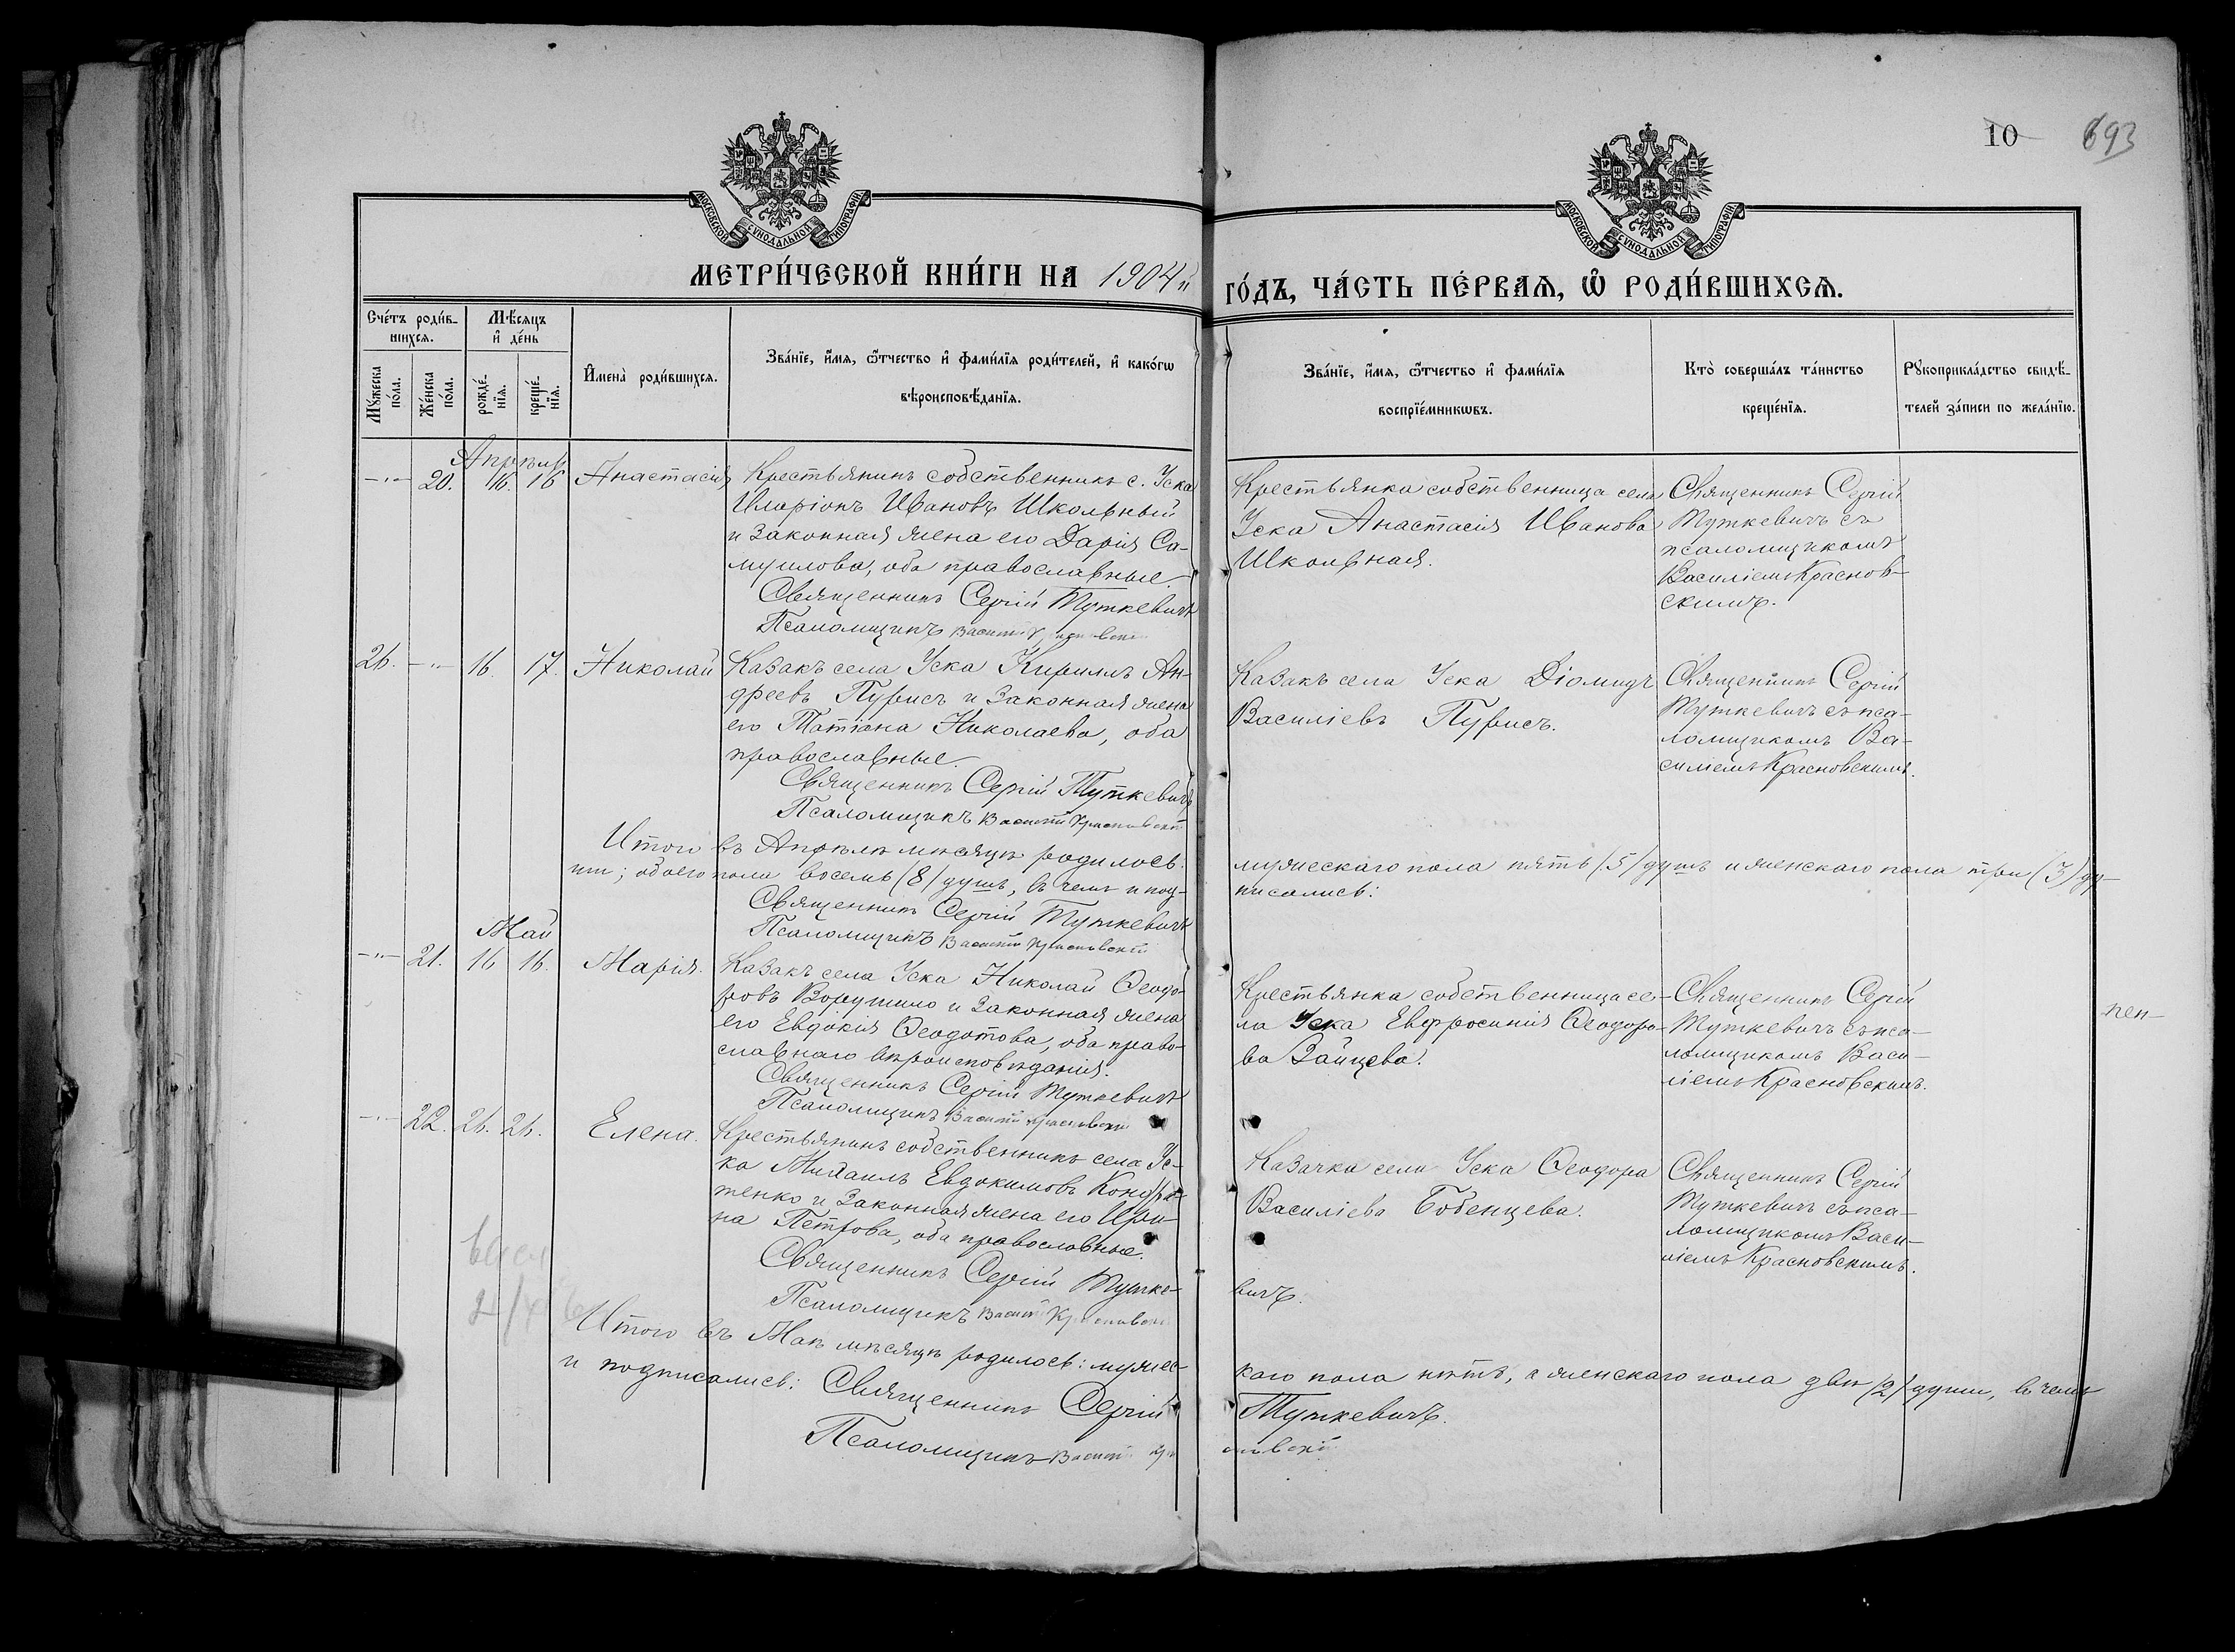 10 693
МОСКОВСКОЙ СѴНОДАЛЬНОЙ ТИПОГРАФІИ
МОСКОВСКОЙ СѴНОДАЛЬНОЙ ТИПОГРАФІИ
МЕТРИ́ЧЕСКОЙ КНИ́ГИ НА 1904й
ГО́ДЪ, ЧА́СТЬ ПЕ́РВАѦ, Ѽ РОДИ́ВШИХСѦ.
Сче́тъ роди́в-
шихсѧ.
Мѣ́сѧцъ
и҆ де́нь
Мꙋ́жеска
по́ла.
Же́нска
по́ла.
рожде́-
нїѧ.
креще́-
нїѧ.
И҆мена̀ роди́вшихсѧ.
Зва́нїе, и҆́мѧ, ѻ҆́тчество и҆ фами́лїѧ роди́телей, и҆ како́гѡ
вѣроисповѣ́данїѧ.
Зва́нїе, и҆́мѧ, ѻ҆́тчество и҆ фами́лїѧ
воспрїе́мникѡвъ.
Кто̀ соверша́лъ та́инство
креще́нїѧ.
Рꙋкоприкла́дство свидѣ́-
телей за́писи по жела́нїю.
Апрѣль
-„- 20. 16. 16 Анастасія
Крестьянинъ собственникъ с. Уска
Иларіонъ Ивановъ Школьный
и законная жена его Дарія Са-
муилова, оба православные.
Священникъ Сергій Туткевичъ
Псаломщикъ Василій Красновскій
Крестьянка собственница села
Уска Анастасія Иванова
Школьная.
Священникъ Сергій
Туткевичъ съ
псаломщикомъ
Василіемъ Краснов-
скимъ.
26. -„- 16. 17. Николай
Казакъ села Уска Кириллъ Ан-
дреевъ Пурисъ и законная жена
его Татіана Николаева, оба
православные.
Священникъ Сергій Туткевичъ
Псаломщикъ Василій Красновскій
Казакъ села Уска Діомидъ
Василіевъ Пурисъ.
Священникъ Сергій
Туткевичъ съ пса-
ломщикомъ Ва-
силіемъ Красновскимъ.
Итого въ Апрѣлѣ мѣсяцѣ родилось:
мужескаго пола пять (5) душъ и женскаго пола три (3) ду-
ши; обоего пола восемь (8) душъ, въ чемъ и под-
писались:
Священникъ Сергій Туткевичъ
Псаломщикъ Василій Красновскій
Май
-„- 21. 16 16. Марія.
Казакъ села Уска Николай Ѳеодо-
ровъ Ворушило и законная жена
его Евдокія Ѳеодотова, оба право-
славнаго вѣроисповѣданія.
Священникъ Сергій Туткевичъ
Псаломщикъ Василій Красновскій
Крестьянка собственница се-
ла Уска Евфросинія Ѳеодоро-
ва Зайцева.
Священникъ Сергій
Туткевичъ съ пса-
ломщикомъ Васи-
ліемъ Красновскимъ.
-„- 22. 26. 26. Елена.
Крестьянинъ собственникъ села Ус-
ка Михаилъ Евдокимовъ Кондра-
тенко и законная жена его Ири-
на Петрова, оба православные.
Священникъ Сергій Туткевичъ.
Псаломщикъ Василій Красновскій
Казачка села Уска Ѳеодора
Василіева Бобенцева.
Священникъ Сергій
Туткевичъ съ пса-
ломщикомъ Васи-
ліемъ Красновскимъ.
Итого въ Маѣ мѣсяцѣ родилось: мужес-
каго пола нѣтъ, а женскаго пола двѣ (2) души, въ чемъ
и подписались: Священникъ Сергій Туткевичъ.
Псаломщикъ Василій Красновскій